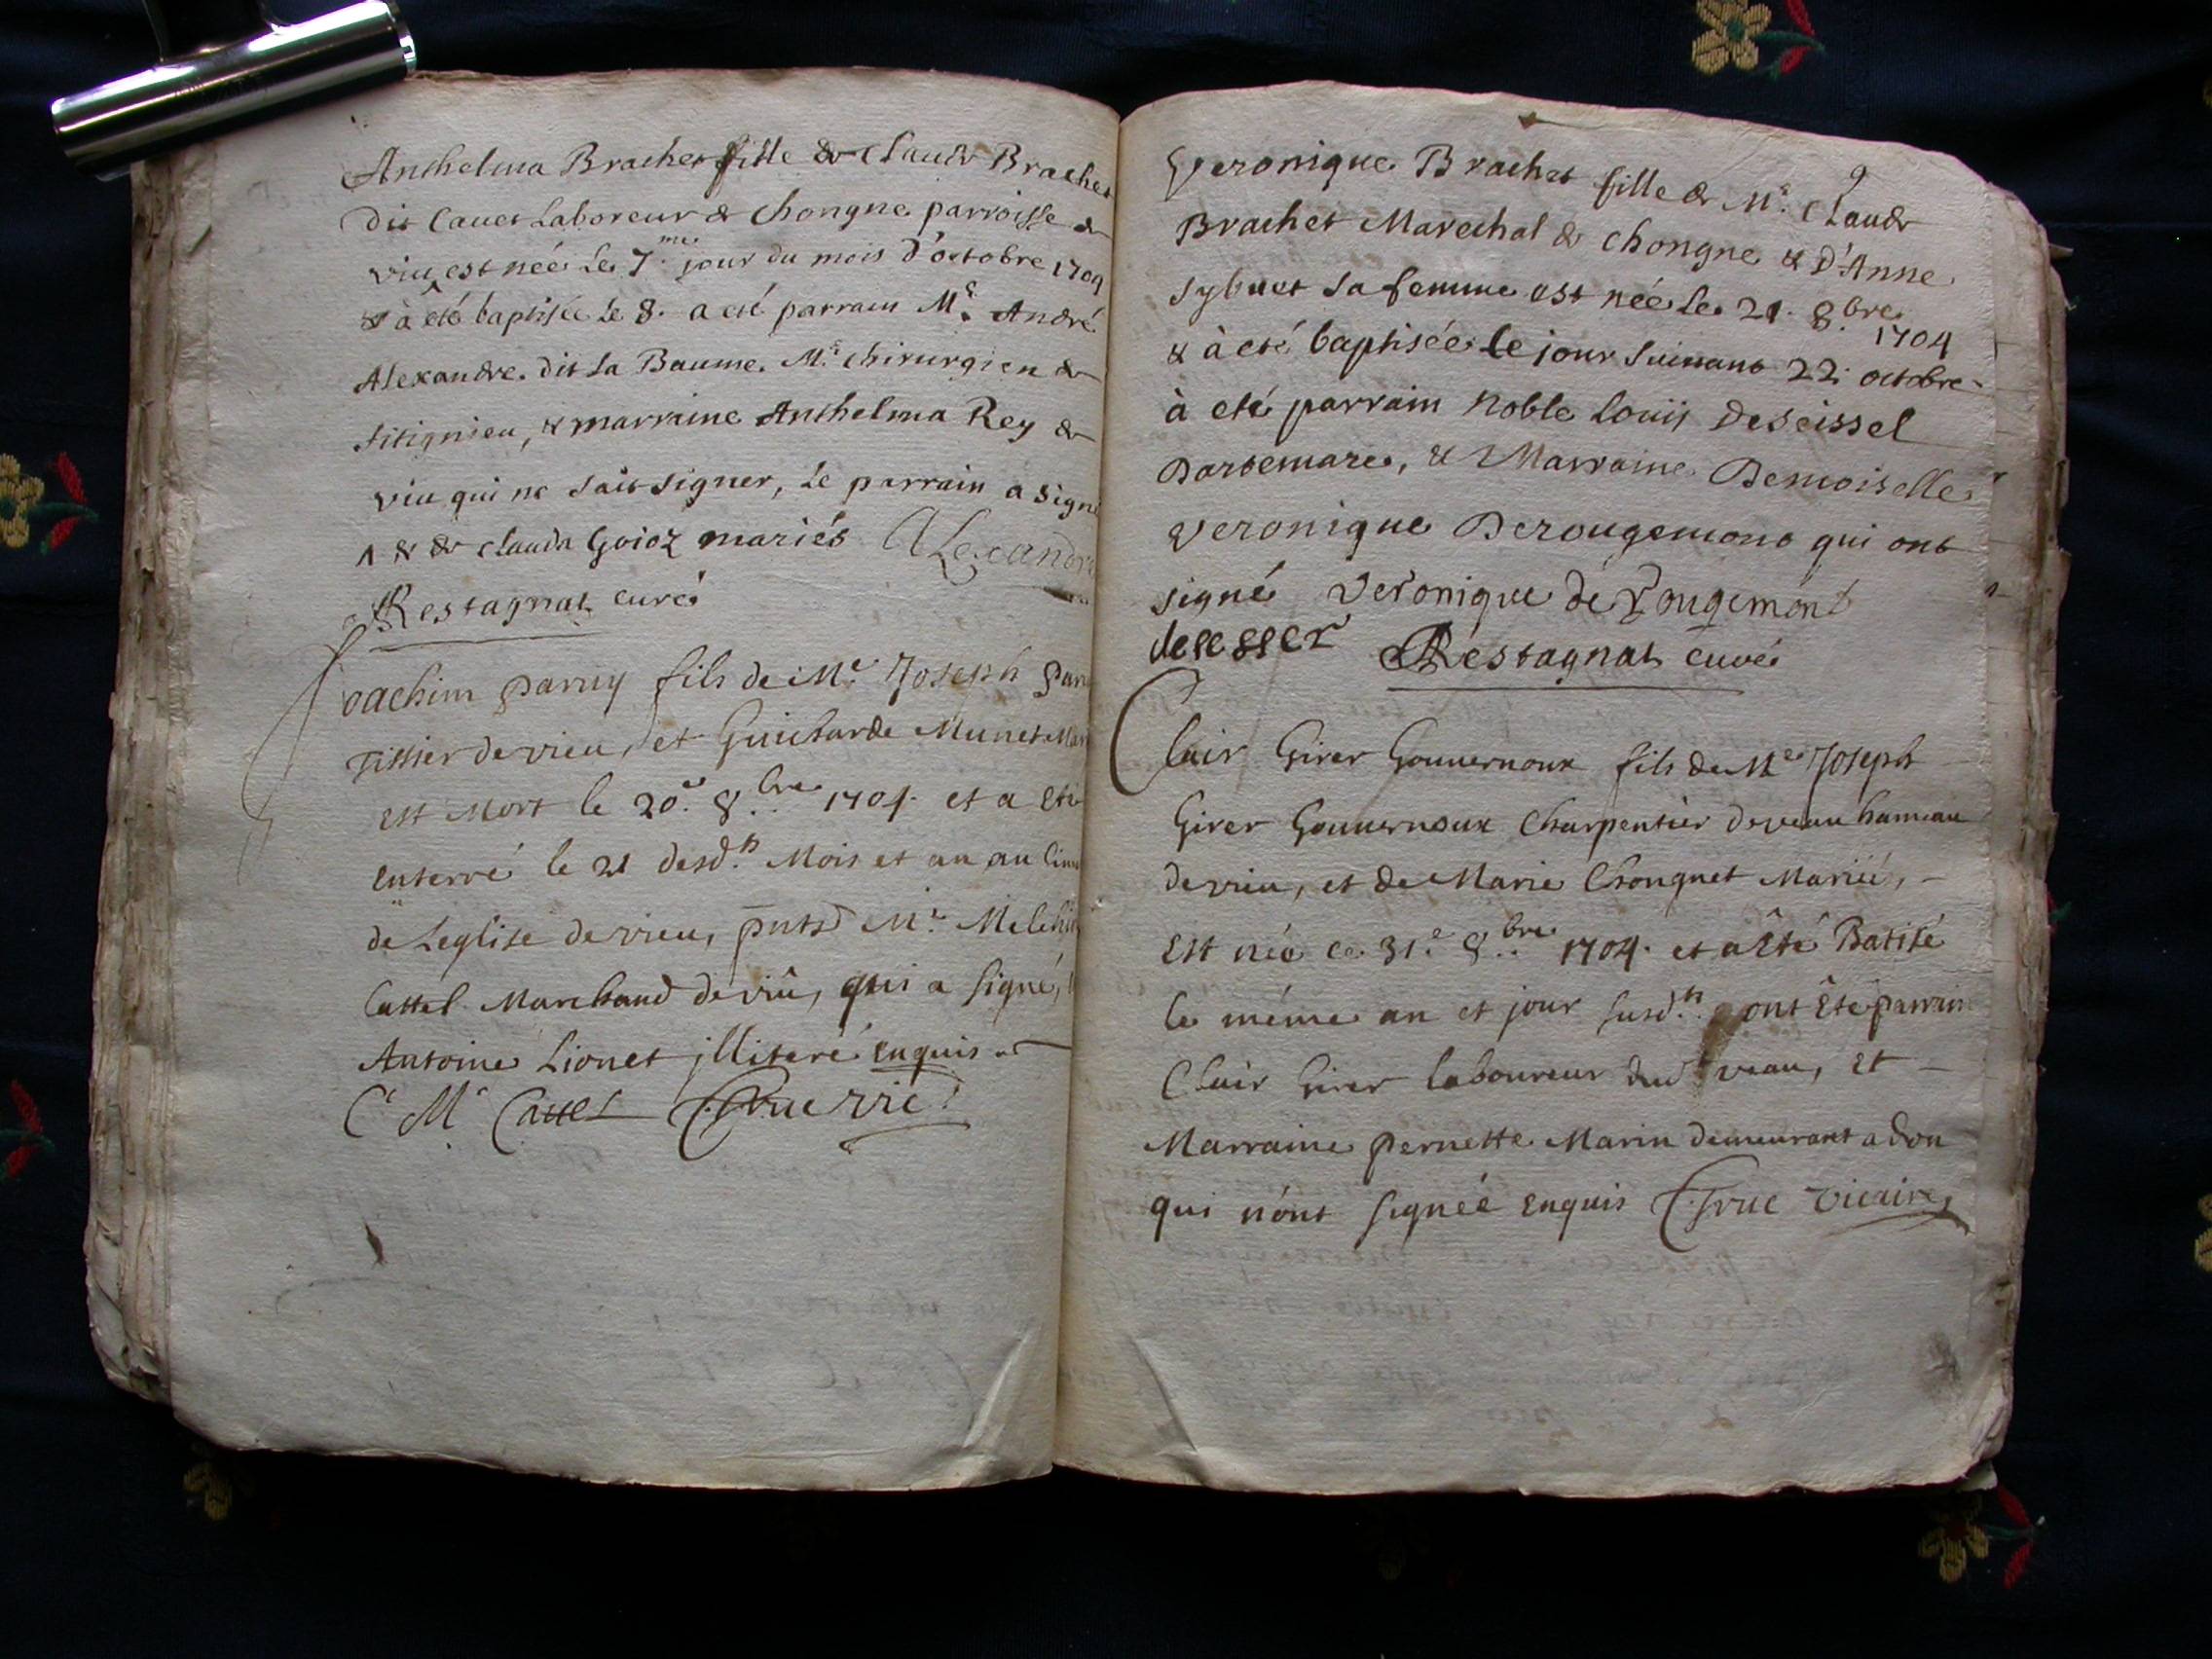 Anthelma Brachet fille de Claude Brachet
dit Cavet Laboreur de Chongne parroisse de
viu, est née le 7.me jour du mois d'octobre 1704
& à été baptisée le 8. a eté parrain Mr. André
Alexandre dit la Baume Mr. chirurgien de
Sitignieu, & marraine Anthelma Rey de
viu qui ne sait signer, le parrain a signé
& de Clauda Goioz mariés Alexandre
Restagnat curé
Joachim paruy fils de Mr. Joseph
Tissier de vieu, et Guicharde Munet
est Mort le 20.e 8.bre 1704. et a Eté
Enterré le 21 desd.ts Mois et an au
de Leglise de vieu, pnts Mr.
Cattel Marchand de viû, qui a signé,
Antoine Lionet jlliteré enquis
C M Cattel Truc vic.
9
Veronique Brachet fille de Mr. Claude
Brachet Marechal de Chongne & D'Anne
Sybuet sa femme est née le 21. 8.bre 1704
& à eté baptisée le jour suivant 22. octobre
à eté parrain Noble Louis Deseissel
Dartemare, & Marraine Demoiselle
Veronique Derougemont qui ont
signé Veronique de Rougemont
desesser Restagnat curé
Clair Girer Gouvernoux fils de Me Joseph
Girer Gouvernoux Charpentier de veau hameau
de vieu, et de Marie Chongnet Marié,
Est néé ce 31.e 8.bre 1704. et a Eté Batisé
le même an et jour susd.ts ont Eté parrain
Clair Girer laboureur dud.t veau, Et
Marraine pernette Marin demeurant a don
qui n'ont signéé Enquis Truc vicaire